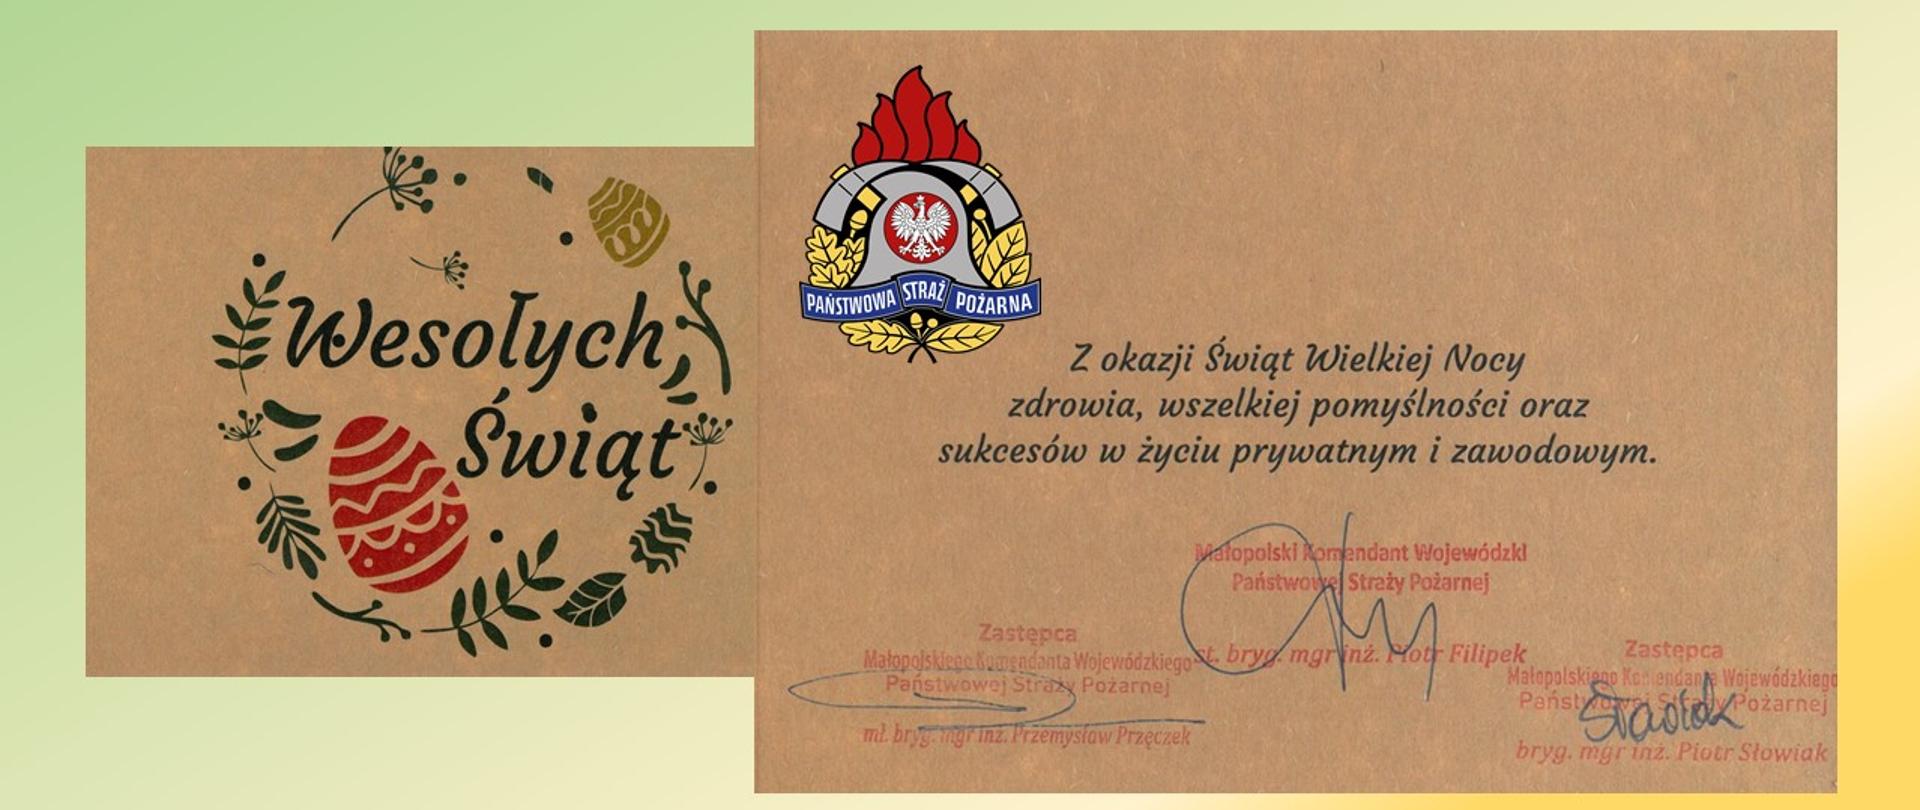 Wesołych
Świąt
PAŃSTWOWA STRAŻ POŻARNA
Z okazji Świąt Wielkiej Nocy
zdrowia, wszelkiej pomyślności oraz
sukcesów w życiu prywatnym i zawodowym.
Małopolski Komendant Wojewódzki
Państwowej Straży Pożarnej
st. bryg. mgr inż. Piotr Filipek
Zastępca
Małopolskiego Komendanta Wojewódzkiego
Państwowej Straży Pożarnej
mł. bryg. mgr inż. Przemysław Przęczek
Zastępca
Małopolskiego Komendanta Wojewódzkiego
Państwowej Straży Pożarnej
bryg. mgr inż. Piotr Słowiak